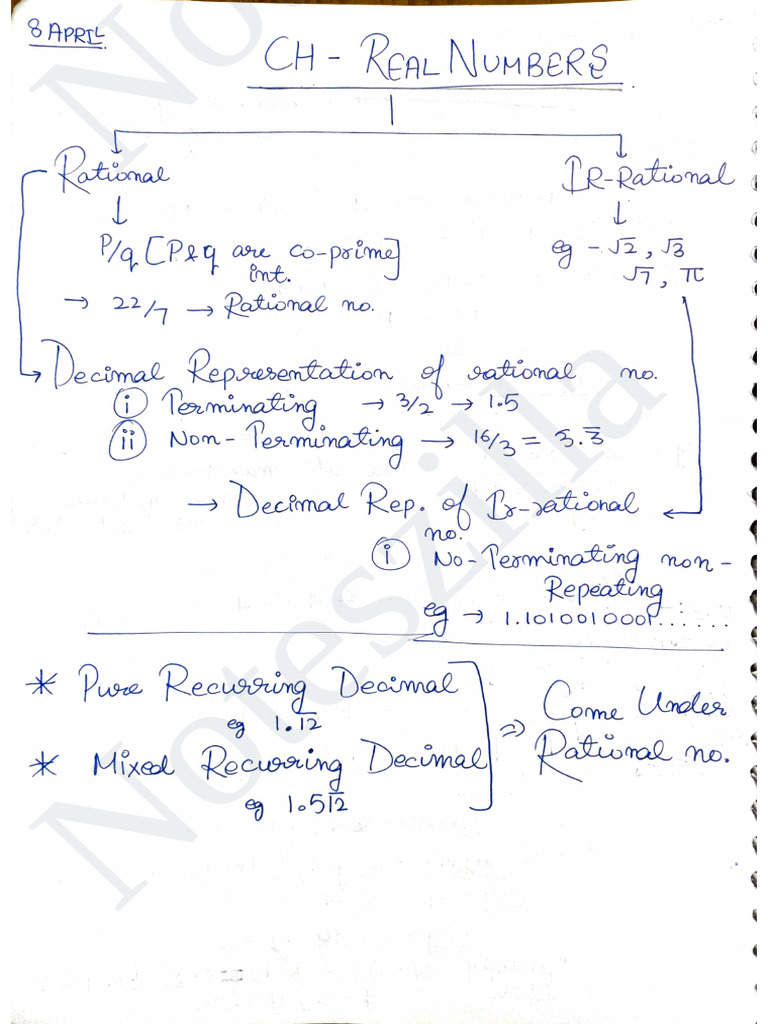 8 APRIL
CH - REAL NUMBERS
Rational
IR-Rational
P/q [P & q are co-prime]
int.
eg - √2, √3
√7, π
→ 22/7 → Rational no.
Decimal Representation of rational no.
i Terminating → 3/2 → 1.5
ii Non-Terminating → 16/3 = 5.3̅
→ Decimal Rep. of Ir-rational
no.
i No-Terminating non-
Repeating
eg → 1.1010010001......
* Pure Recurring Decimal
eg 1.1̅2̅
* Mixed Recurring Decimal
eg 1.51̅2̅
⇒ Come Under
Rational no.
Noteszilla
No